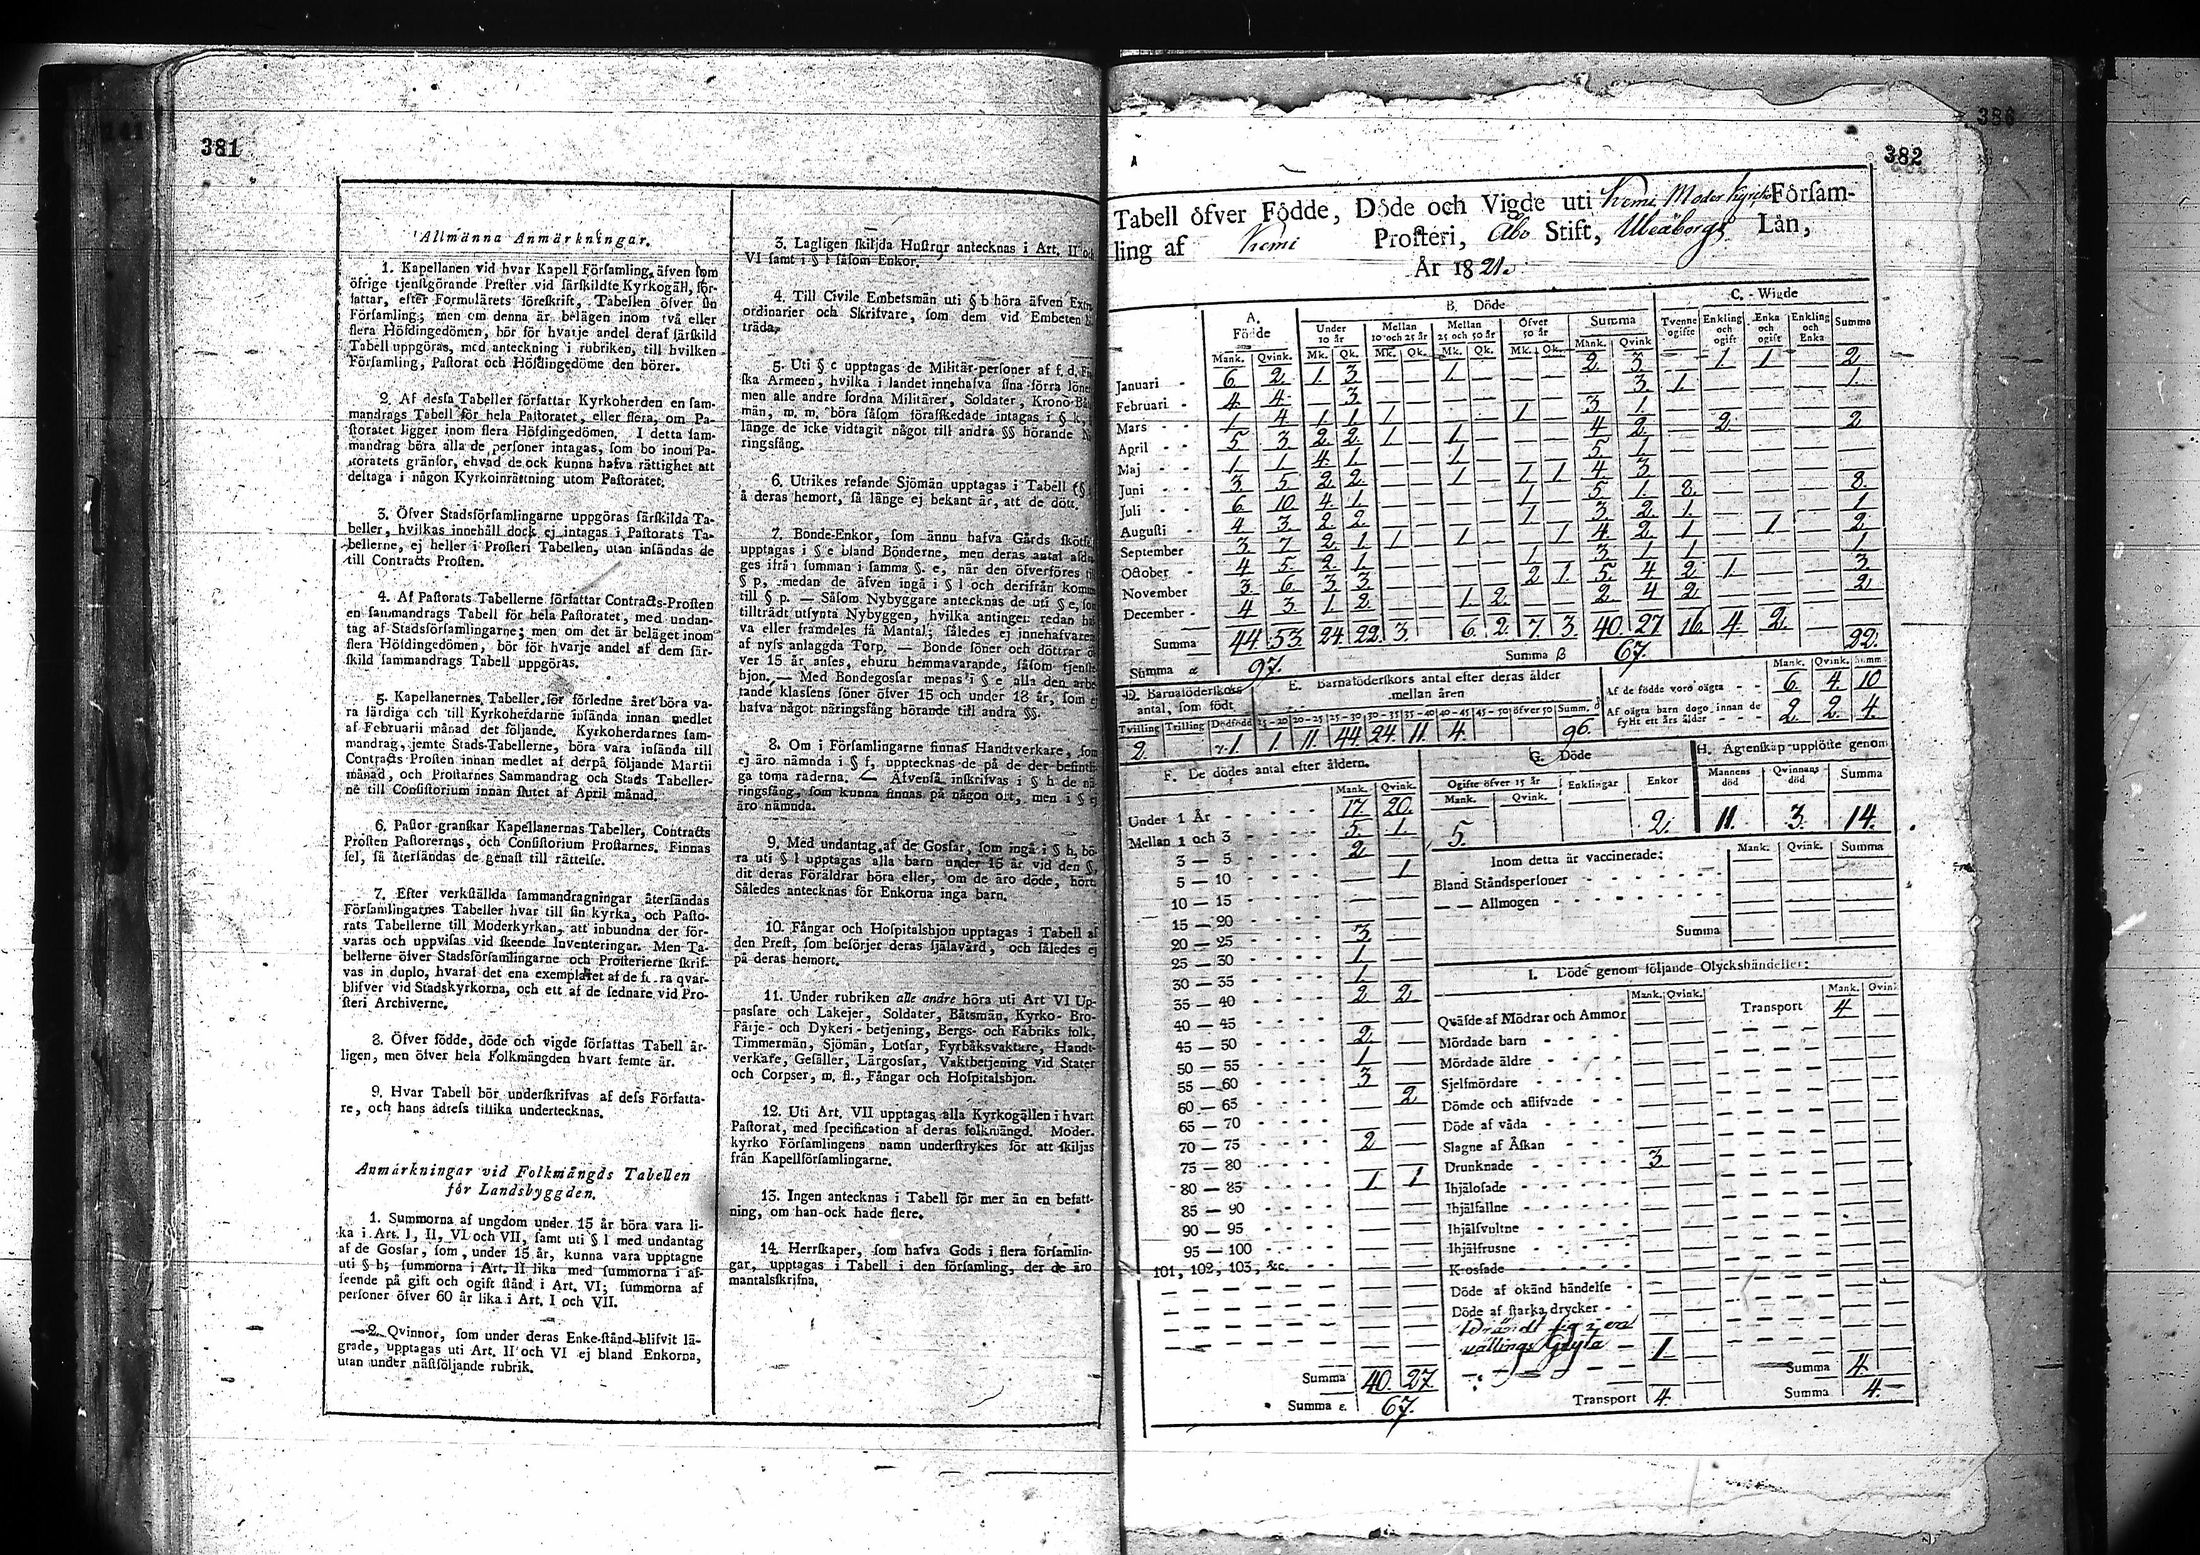 381
Allmänna Anmärkningar.
1. Kapellanen vid hvar Kapell Församling, äfven som
öfrige tjenstgörande Prester vid särskildte Kyrkogäll, för-
fattar, efter Formulärets föreskrift, Tabellen öfver sin
Församling; men om denna är belägen inom två eller
flera Höfdingedömen, bör för hvarje andel deraf särskild
Tabell uppgöras, med anteckning i rubriken, till hvilken
Församling, Pastorat och Höfdingedöme den hörer.
2. Af dessa Tabeller författar Kyrkoherden en sam-
mandrags Tabell för hela Pastoratet, eller flera, om Pa-
storatet ligger inom flera Höfdingedömen. I detta sam-
mandrag böra alla de personer intagas, som bo inom Pa-
storatets gränsor, ehvad de ock kunna hafva rättighet att
deltaga i någon Kyrkoinrättning utom Pastoratet.
3. Öfver Stadsförsamlingarne uppgöras särskilda Ta-
beller, hvilkas innehåll dock ej intagas i Pastorats Ta-
bellerne, ej heller i Prosteri Tabellen, utan insändas de
till Contracts Prosten.
4. Af Pastorats Tabellerne författar Contracts-Prosten
en sammandrags Tabell för hela Pastoratet, med undan-
tag af Stadsförsamlingarne; men om det är beläget inom
flera Höfdingedömen, bör för hvarje andel af dem sär-
skild sammandrags Tabell uppgöras.
5. Kapellanernes Tabeller för förledne året böra va-
ra färdiga och till Kyrkoherdarne insända innan medlet
af Februarii månad det följande. Kyrkoherdarnes sam-
mandrag, jemte Stads-Tabellerne, böra vara insända till
Contracts Prosten innan medlet af derpå följande Martii
månad, och Prostarnes Sammandrag och Stads Tabeller-
ne till Consistorium innan slutet af April månad.
6. Pastor granskar Kapellanernas Tabeller, Contracts
Prosten Pastorernas, och Consistorium Prostarnes. Finnas
fel, så återsändas de genast till rättelse.
7. Efter verkställda sammandragningar återsändas
Församlingarnes Tabeller hvar till sin kyrka, och Pasto-
rats Tabellerne till Moderkyrkan, att inbundna der för-
varas och uppvisas vid skeende Inventeringar. Men Ta-
bellerne öfver Stadsförsamlingarne och Prosterierne skrif-
vas in duplo, hvaraf det ena exemplaret af de förra qvar-
blifver vid Stadskyrkorna, och ett af de sednare vid Pro-
steri Archiverne.
8. Öfver födde, döde och vigde författas Tabell år-
ligen, men öfver hela Folkmängden hvart femte år.
9. Hvar Tabell bör underskrifvas af dess Författa-
re, och hans adress tillika undertecknas.
Anmärkningar vid Folkmängds Tabellen
för Landsbyggden.
1. Summorna af ungdom under 15 år böra vara li-
ka i Art. I, II, VI och VII, samt uti § l med undantag
af de Gossar, som, under 15 år, kunna vara upptagne
uti § h; summorna i Art. II lika med summorna i af-
seende på gift och ogift stånd i Art. VI; summorna af
personer öfver 60 år lika i Art. I och VII.
2. Qvinnor, som under deras Enke-stånd blifvit lä-
grade, upptagas uti Art. II och VI ej bland Enkorna,
utan under nästföljande rubrik.
3. Lagligen skiljda Hustrur antecknas i Art. II och
VI samt i § l såsom Enkor.
4. Till Civile Embetsmän uti § b höra äfven Extra
ordinarier och Skrifvare, som dem vid Embeten
träda.
5. Uti § c upptagas de Militär-personer af f. d. Fin
ska Armeen, hvilka i landet innehafva sina förra löner
men alle andre fordna Militärer, Soldater, Krono-Båts
män, m. m. böra såsom förafskedade intagas i § k,
länge de icke vidtagit något till andra §§ hörande Nä
ringsfång.
6. Utrikes resande Sjömän upptagas i Tabell (§
å deras hemort, så länge ej bekant är, att de dött.
7. Bonde-Enkor, som ännu hafva Gårds skötsel
upptagas i § e bland Bönderne, men deras antal afdra
ges ifrån summan i samma §. e, när den öfverföres till
§ p, medan de äfven ingå i § l och derifrån komma
till § p. — Såsom Nybyggare antecknas de uti § e, som
tillträdt utsynta Nybyggen, hvilka antingen redan haf
va eller framdeles få Mantal; således ej innehafvaren
af nyss anlaggda Torp. — Bonde söner och döttrar ö
ver 15 år anses, ehuru hemmavarande, såsom tjenste
hjon. — Med Bondegossar menas i § e alla den arbe
tande klassens söner öfver 15 och under 18 år, som ej
hafva något näringsfång hörande till andra §§.
8. Om i Församlingarne finnas Handtverkare, som
ej äro nämnda i § f, upptecknas de på de der befintli
ga toma raderna. — Äfvenså inskrifvas i § h de nä
ringsfång, som kunna finnas på någon ort, men i § ej
äro nämnda.
9. Med undantag af de Gossar, som ingå i § h, bö-
ra uti § l upptagas alla barn under 15 år vid den §,
dit deras Föräldrar höra eller, om de äro döde, hört.
Således antecknas för Enkorna inga barn.
10. Fångar och Hospitalshjon upptagas i Tabell af
den Prest, som besörjer deras själavård, och således ej
på deras hemort.
11. Under rubriken alle andre höra uti Art VI Up-
passare och Lakejer, Soldater, Båtsmän, Kyrko- Bro-
Färje- och Dykeri-betjening, Bergs- och Fabriks folk,
Timmermän, Sjömän, Lotsar, Fyrbåksvaktare, Handt-
verkare, Gesäller, Lärgossar, Vaktbetjening vid Stater
och Corpser, m. fl., Fångar och Hospitalshjon.
12. Uti Art. VII upptagas alla Kyrkogällen i hvart
Pastorat, med specification af deras folkmängd. Moder-
kyrko Församlingens namn understrykes för att skiljas
från Kapellförsamlingarne.
13. Ingen antecknas i Tabell för mer än en befatt-
ning, om han ock hade flere.
14. Herrskaper, som hafva Gods i flera församlin-
gar, upptagas i Tabell i den församling, der de äro
mantalsskrifna.
386
382
Tabell öfver Födde, Döde och Vigde uti Kemi Moder kyrcko Församling
ling af Kemi Prosteri, Åbo Stift, Uleåborgs Län,
År 1821.
A. Födde B. Döde C. Wigde
Under 10 år Mellan 10 och 25 år Mellan 25 och 50 år Öfver 50 år Summa Tvenne ogifte Enkling och ogift Enka och ogift Enkling och Enka Summa
Mank. Qvink. Mk. Qk. Mk. Qk. Mk. Qk. Mk. Qk. Mank. Qvink
Januari 6 2 1 3 — — 1 — — — 2 3 — 1 1 — 2
Februari 4 4 — 3 — — — — — — — 3 1 — — — 1
Mars 1 4 1 1 1 — — — 1 — 3 1 — — — — —
April 5 3 2 2 1 — 1 — — — 4 2 — 2 — — 2
Maj 1 1 4 1 — — 1 — — — 5 1 — — — — —
Juni 3 5 2 2 — — 1 — 1 1 4 3 — — — — —
Juli 6 10 4 1 — — — — 1 — 5 1 8 — — — 8
Augusti 4 3 2 2 — — — — 1 — 3 2 1 — — — 1
September 3 7 2 1 1 — 1 — — 1 4 2 1 — 1 — 2
October 4 5 2 1 — — — — 1 — 3 1 1 — — — 1
November 3 6 3 3 — — — — 2 1 5 4 2 1 — — 3
December 4 3 1 2 — — 1 2 — — 2 4 2 — — — 2
Summa 44 53 24 22 3 6 2 7 3 40 27 16 4 2 — 22
Summa α 97. Summa β 67.
D. Barnaföderskors antal, som födt
Tvilling Trilling Dödfödd
2 1
E. Barnaföderskors antal efter deras ålder mellan åren
15-20 20-25 25-30 30-35 35-40 40-45 45-50 öfver 50 Summ. δ
1 11 44 24 11 4 96
Mank. Qvink. Summ
Af de födde voro oägta 6 4 10
Af oägta barn dogo innan de fyllt ett års ålder 2 2 4
F. De dödes antal efter åldern.
Mank. Qvink.
Under 1 År 17 20
Mellan 1 och 3 5 1
3 — 5 2 —
5 — 10 — 1
10 — 15 — —
15 — 20 — —
20 — 25 3 —
25 — 30 1 —
30 — 35 1 —
35 — 40 2 2
40 — 45 — —
45 — 50 2 —
50 — 55 1 —
55 — 60 3 —
60 — 65 — 2
65 — 70 — —
70 — 75 2 —
75 — 80 — —
80 — 85 1 1
85 — 90 — —
90 — 95 — —
95 — 100 — —
101, 102, 103, &c.
Summa 40 27
Summa ε. 67.
G. Döde
Ogifte öfver 15 år Enklingar Enkor
Mank. Qvink.
5. 2.
H. Ägtenskap upplöste genom
Mannens död Qvinnans död Summa
11. 3. 14.
Inom detta år vaccinerade: Mank. Qvink. Summa
Bland Ståndspersoner
— — Allmogen
Summa
I. Döde genom följande Olyckshändelser:
Mank. Qvink. Transport Mank. Qvink
4
Qväfde af Mödrar och Ammor
Mördade barn
Mördade äldre
Sjelfmördare
Dömde och aflifvade
Döde af våda
Slagne af Åskan
Drunknade 3
Ihjälosade
Ihjälfallne
Ihjälsvultne
Ihjälfrusne
Krossade
Döde af okänd händelse
Döde af starka drycker
brändt sig i en
vällings Gryta 1
Transport 4
Summa 4
Summa 4